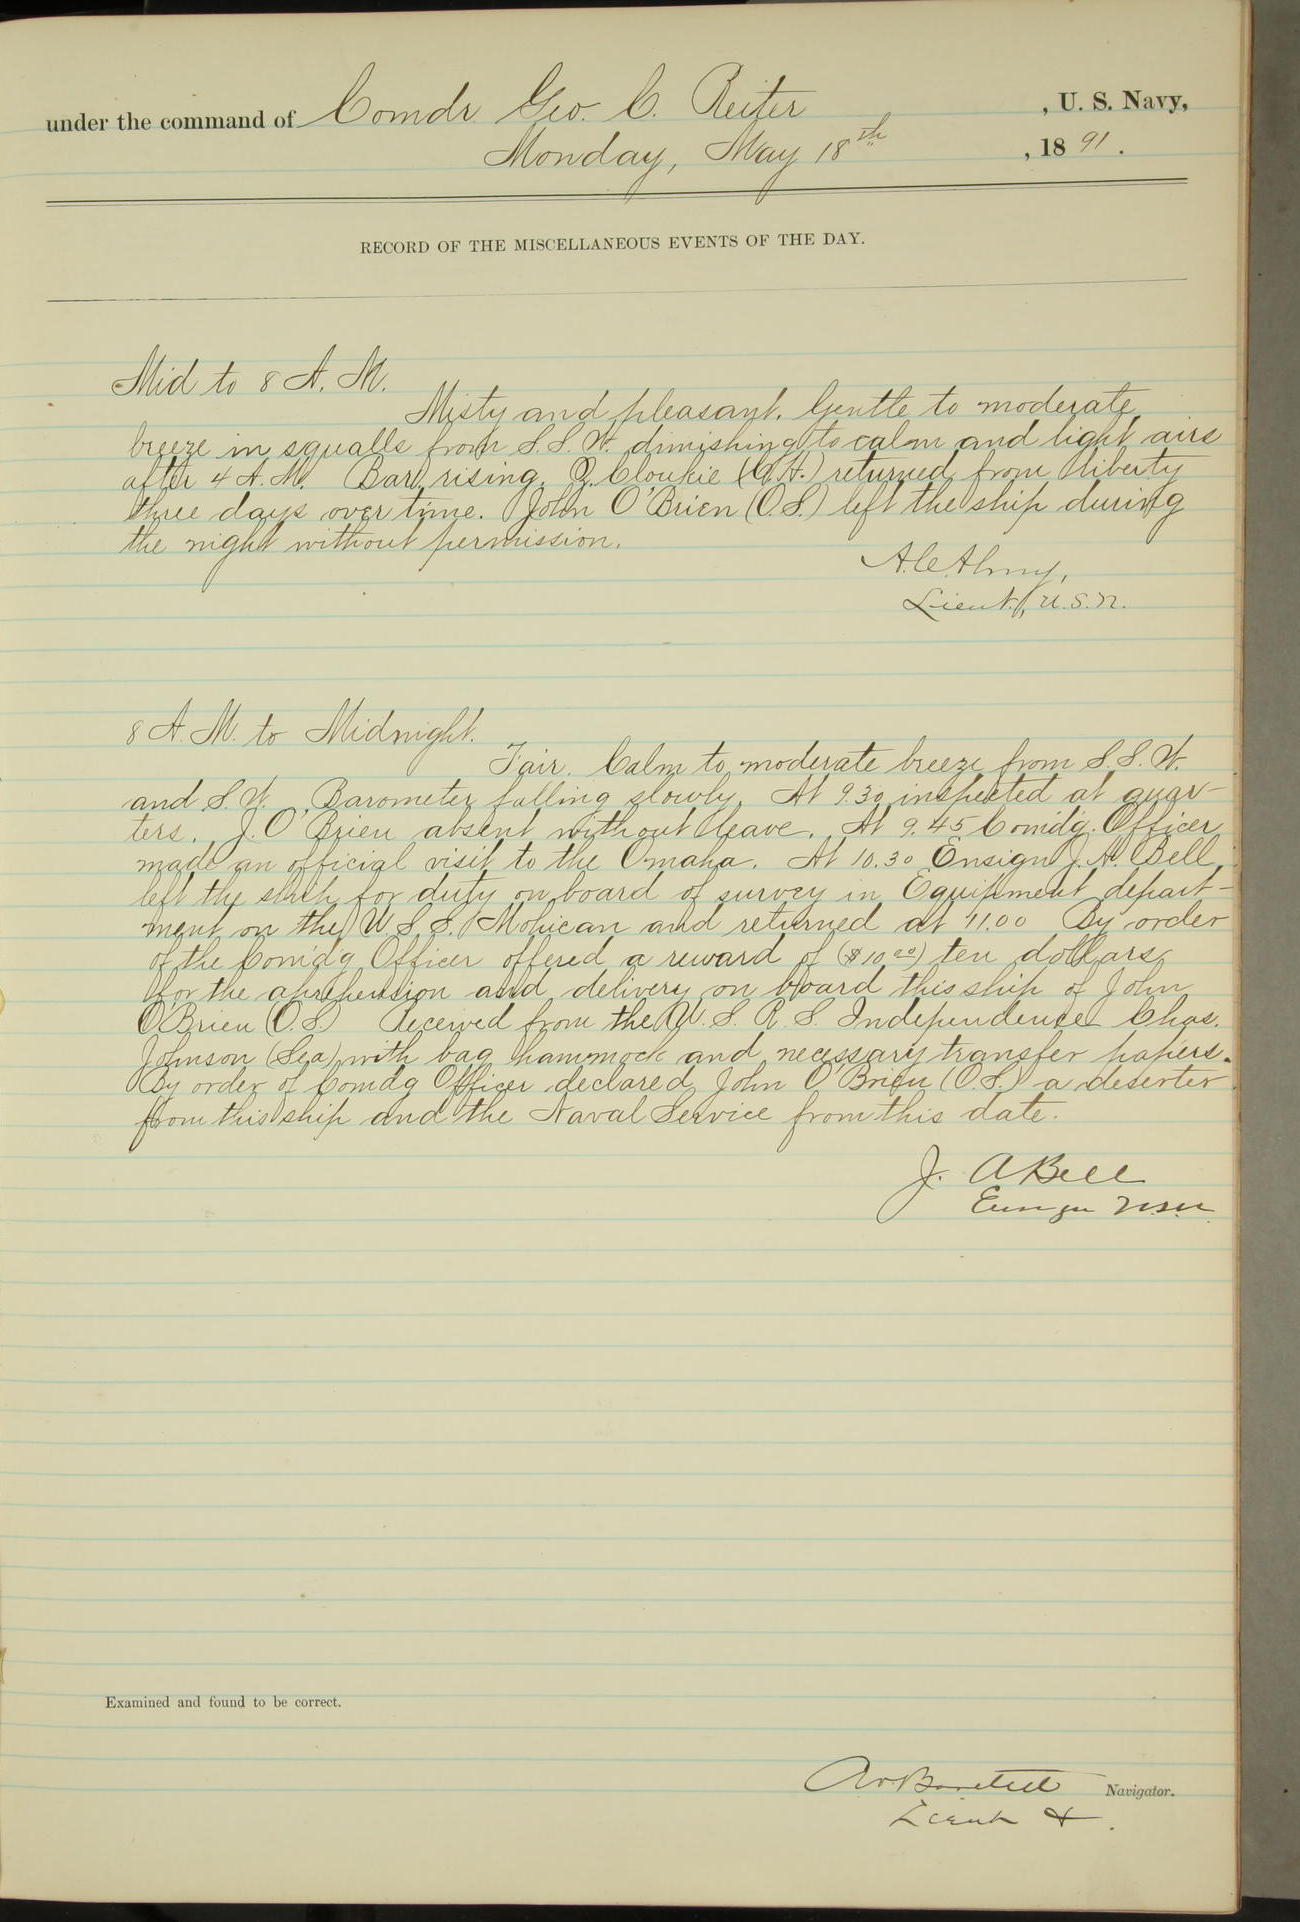 under the command of Comdr Geo. C. Reiter , U. S. Navy,
Monday, May 18th , 1891.
RECORD OF THE MISCELLANEOUS EVENTS OF THE DAY.
Mid to 8 A. M.
Misty and pleasant. Gentle to moderate
breeze in squalls from S. S. W. dimishing to calm and light airs
after 4 A. M. Bar. rising. returned from liberty
three days over time. John O'Brien (O.S.) left the ship during
the night without permission.
A.C. Almy,
Lieut., U.S.N.
8 A. M. to Midnight.
Fair. Calm to moderate breeze from S. S. W.
and S. W. Barometer falling slowly. At 9.30 inspected at quar-
ters. J. O'Brien absent without leave. At 9.45 Comdg. Officer
made an official visit to the Omaha. At 10.30 Ensign J. A. Bell
left the ship for duty on board of survey in Equipment depart-
ment on the U. S. S. Mohican and returned at 11.00 By order
of the Comdg Officer offered a reward of ($10.00) ten dollars
for the aprehension and delivery on board this ship of John
O'Brien (O.S.) Received from the U. S. R. S. Independence Chas.
Johnson (Sea) with bag hammock and necessary transfer papers.
By order of Comdg Officer declared John O'Brien (O.S.) a deserter
from this ship and the Naval Service from this date.
J. A Bell
Ensign USN
Examined and found to be correct.
Navigator.
Lieut &